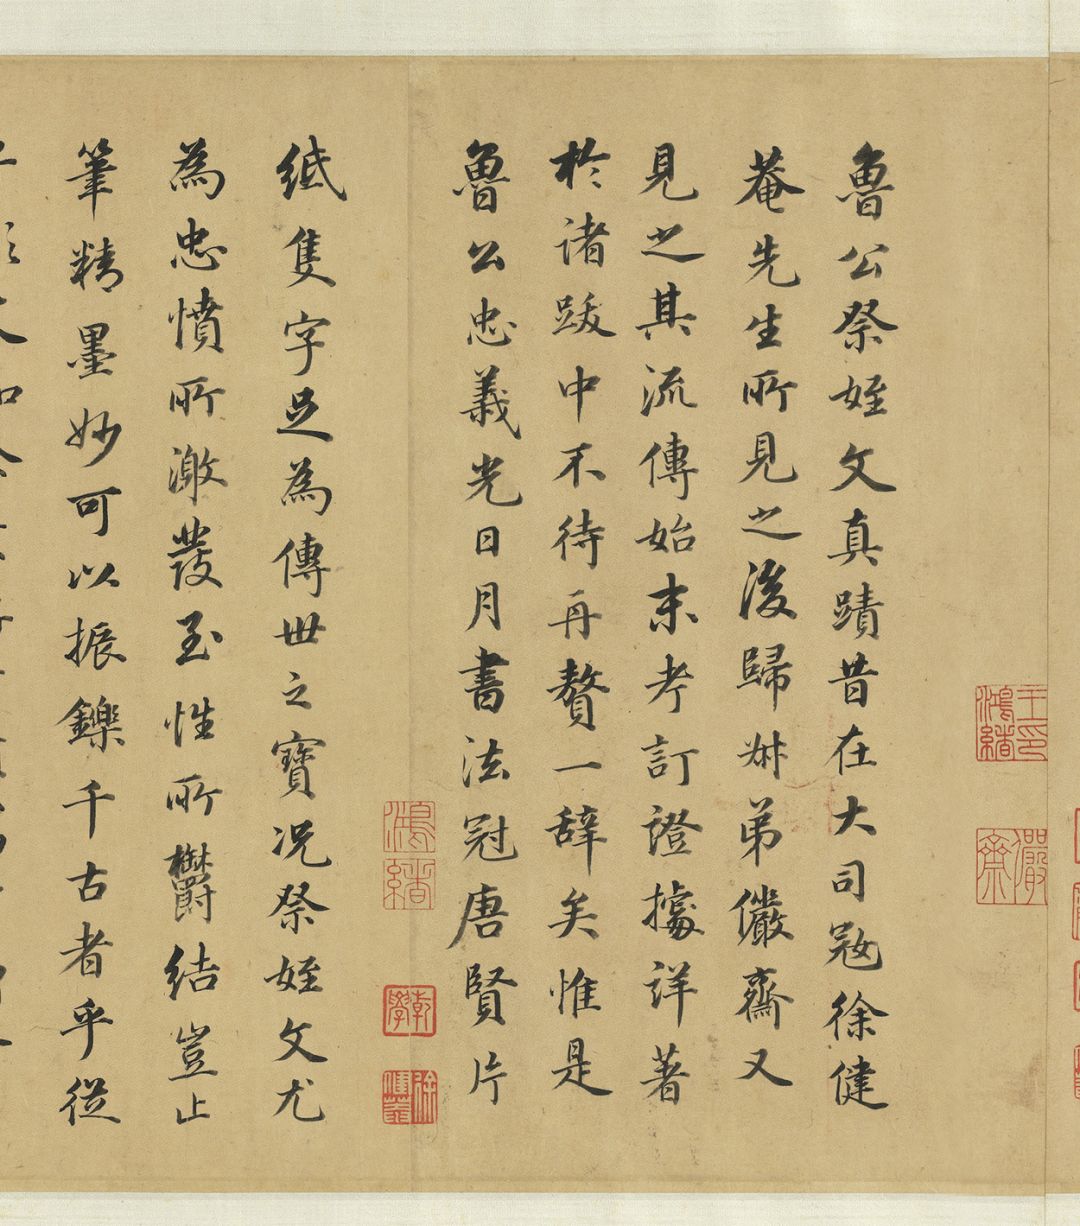 魯公祭姪文真蹟昔在大司寇徐健
菴先生所見之後歸叔弟儼齋又
見之其流傳始末考訂證據詳著
於諸跋中不待再贅一辭矣惟是
魯公忠義光日月書法冠唐賢片
紙隻字足為傳世之寶況祭姪文尤
為忠憤所激發至性所鬱結豈止
筆精墨妙可以振鑠千古者乎從
王印鴻緒
儼齋
鴻緒
乾學
徐健菴